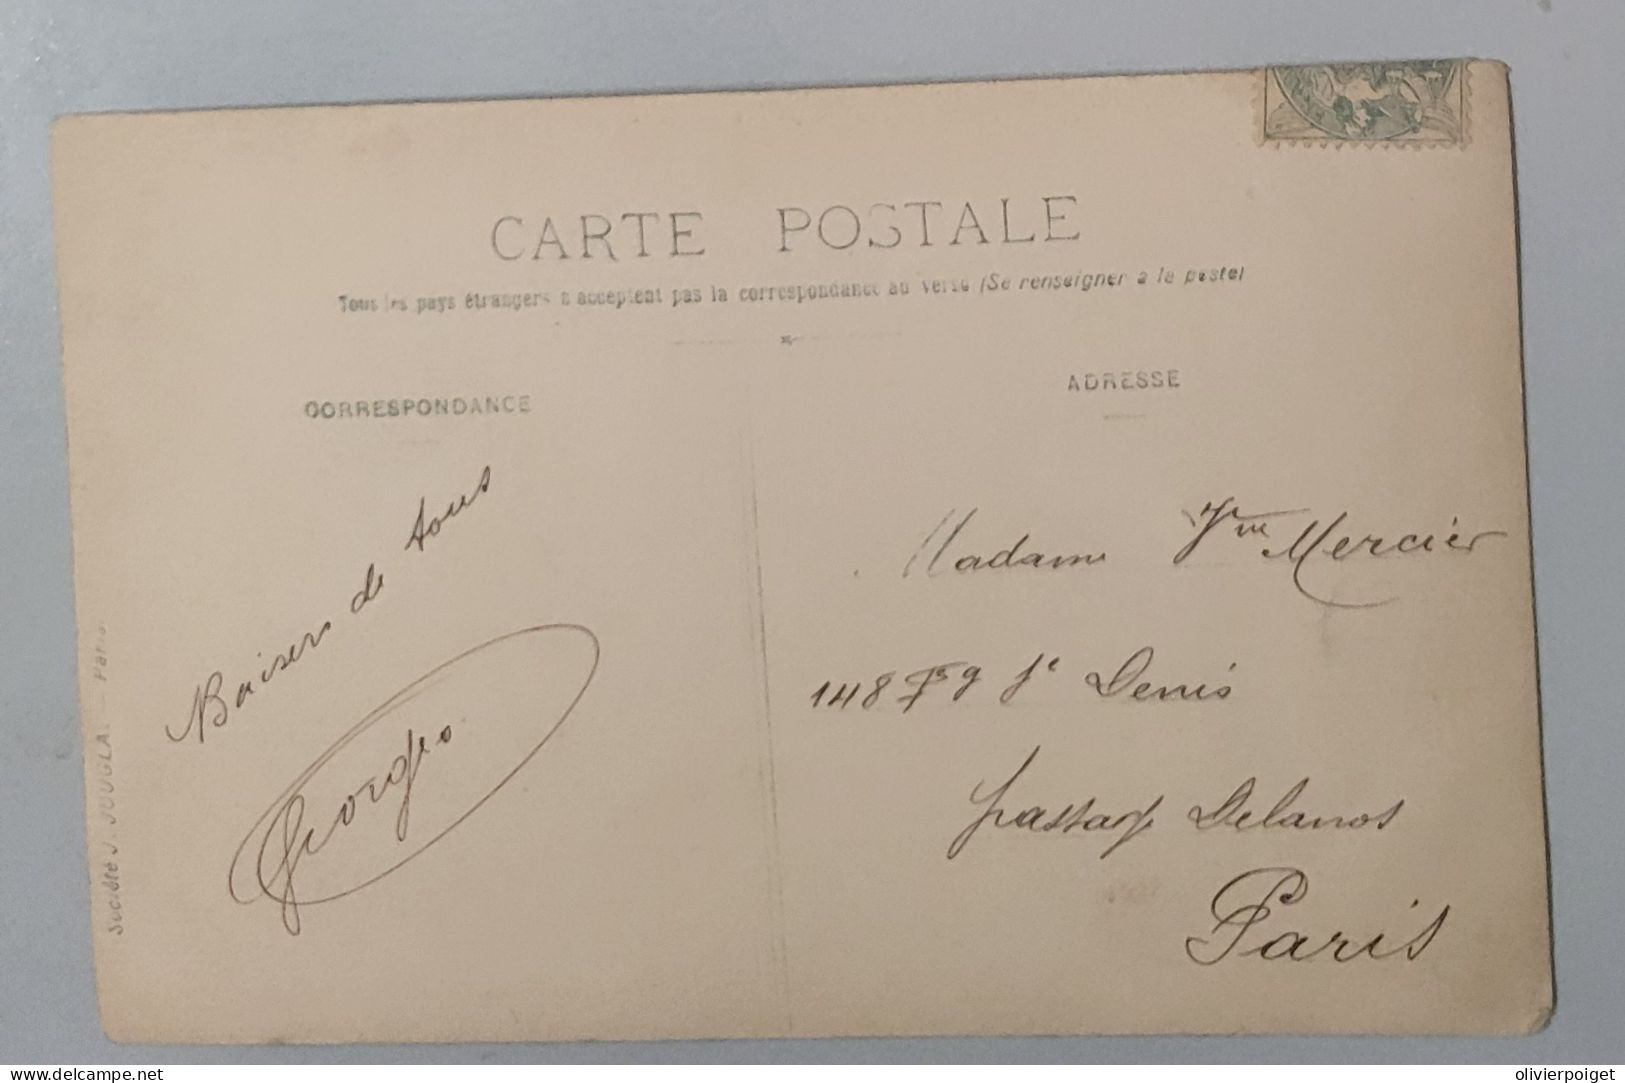 CARTE POSTALE
Tous les pays étrangers n'acceptent pas la correspondance au verso (Se renseigner à la poste)
CORRESPONDANCE
ADRESSE
Baisers de tous
Georges
Madame Mercier
148 Fg St Denis
passage Delanos
Paris
Société J. JOUGLA. — Paris.
delcampe.net
olivierpoiget